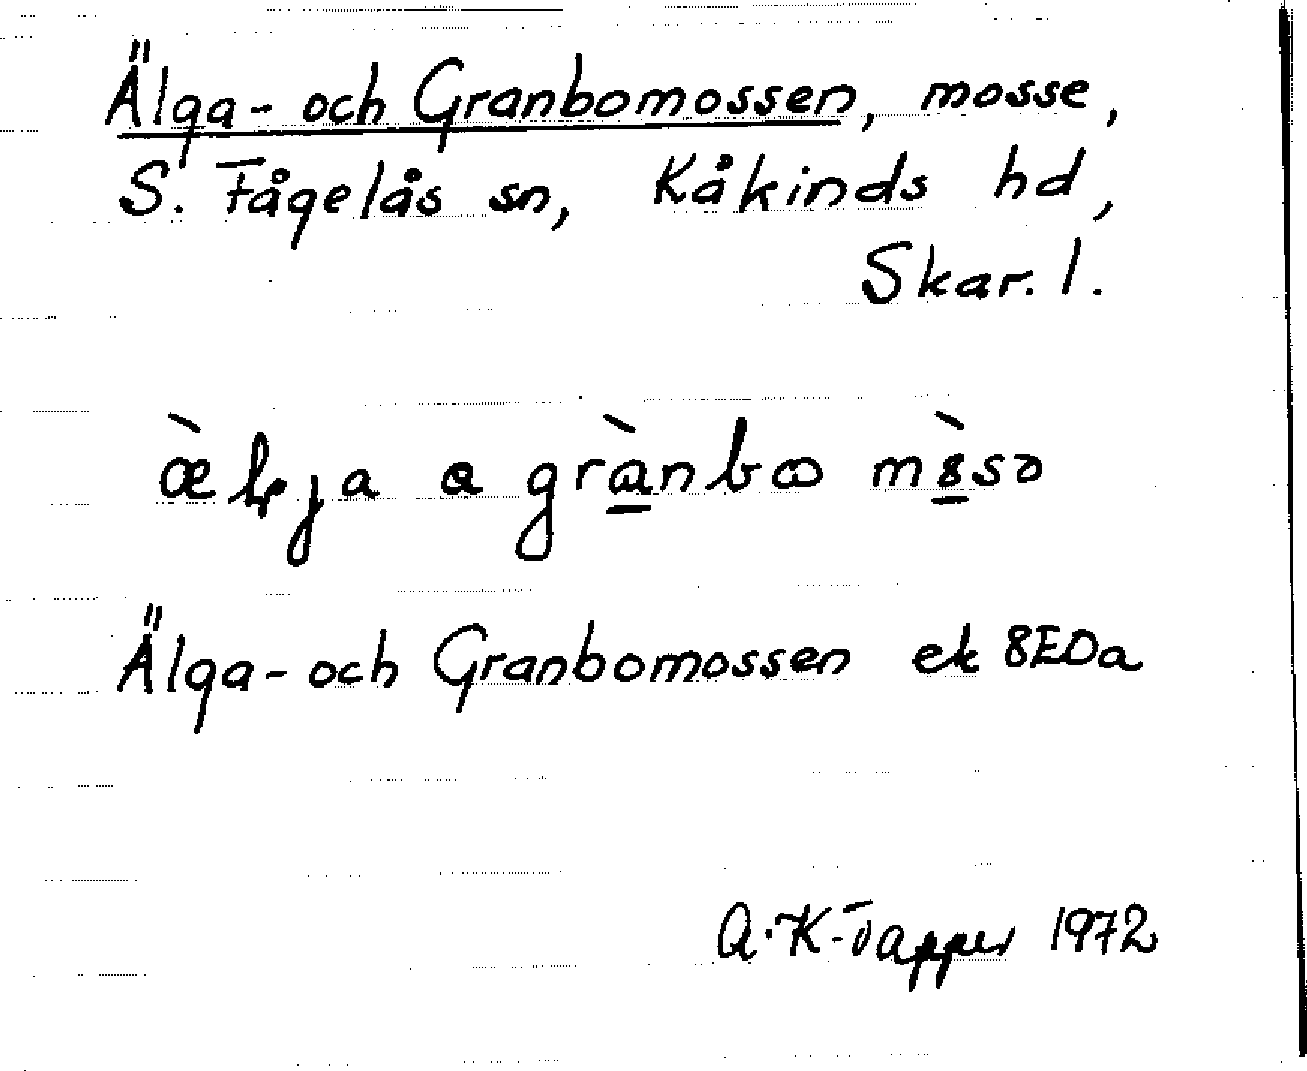 Älga- och Granbomossen, mosse,
S. Fågelås sn, Kåkinds hd,
Skar. l.
a grànbω
Älga- och Granbomossen ek 8EDa
A.-K. Tapper 1972